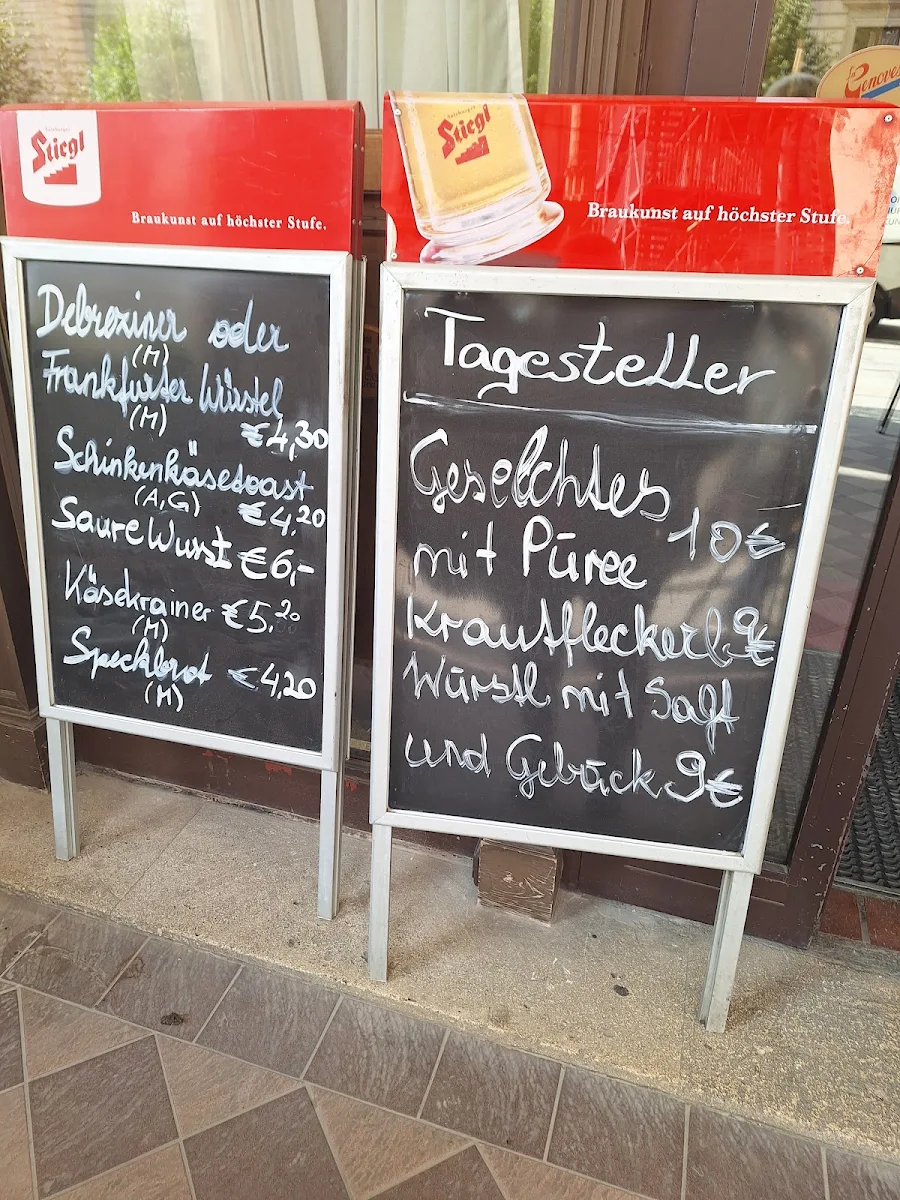 Salzburger
Stiegl
Braukunst auf höchster Stufe.
Debreziner oder
(M)
Frankfurter Würstel
(M)
€4,30
Schinkenkäsetoast
(A,G)
€4,20
Saure Wurst €6,-
Käsekrainer €5,20
(M)
Speckbrot €4,20
(M)
Salzburger
Stiegl
Braukunst auf höchster Stufe.
Tagesteller
Geselchtes
mit Püree 10€
Krautfleckerl 9€
Würstl mit Saft
und Gebäck 9€